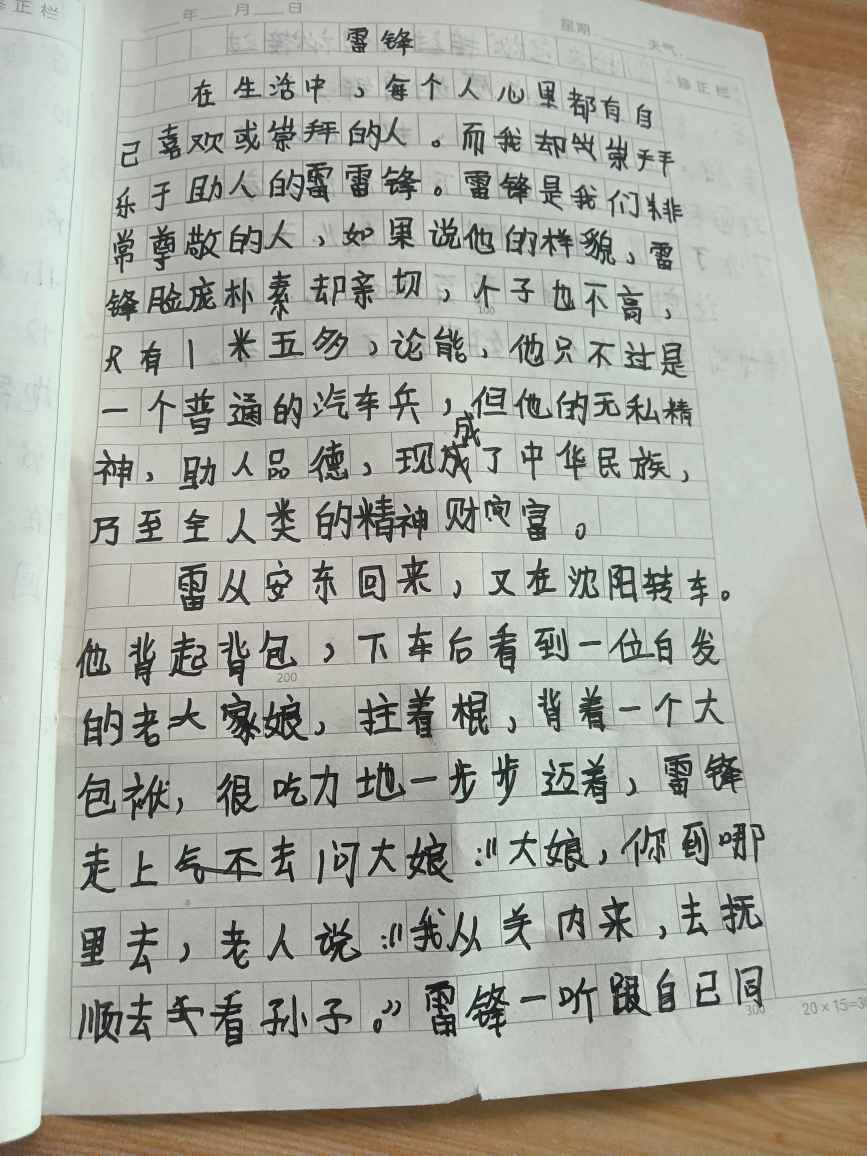 修正栏
年 月 日
星期 天气
修正栏
雷锋
在生活中，每个人心里都有自
己喜欢或崇拜的人。而我却崇拜
乐于助人的雷雷锋。雷锋是我们非
常尊敬的人，如果说他的样貌，雷
锋脸庞朴素却亲切，个子也不高，
100
只有1米五多，论能，他只不过是
一个普通的汽车兵，但他的无私精
成
神，助人品德，现成了中华民族，
乃至全人类的精神财富。
雷从安东回来，又在沈阳转车。
他背起背包，下车后看到一位白发
200
的老大家娘，拄着棍，背着一个大
包袱，很吃力地一步步迈着，雷锋
走上气不去问大娘：“大娘，你到哪
里去，老人说：“我从关内来，去抚
顺去看孙子。”雷锋一听跟自己同
300
20×15=30